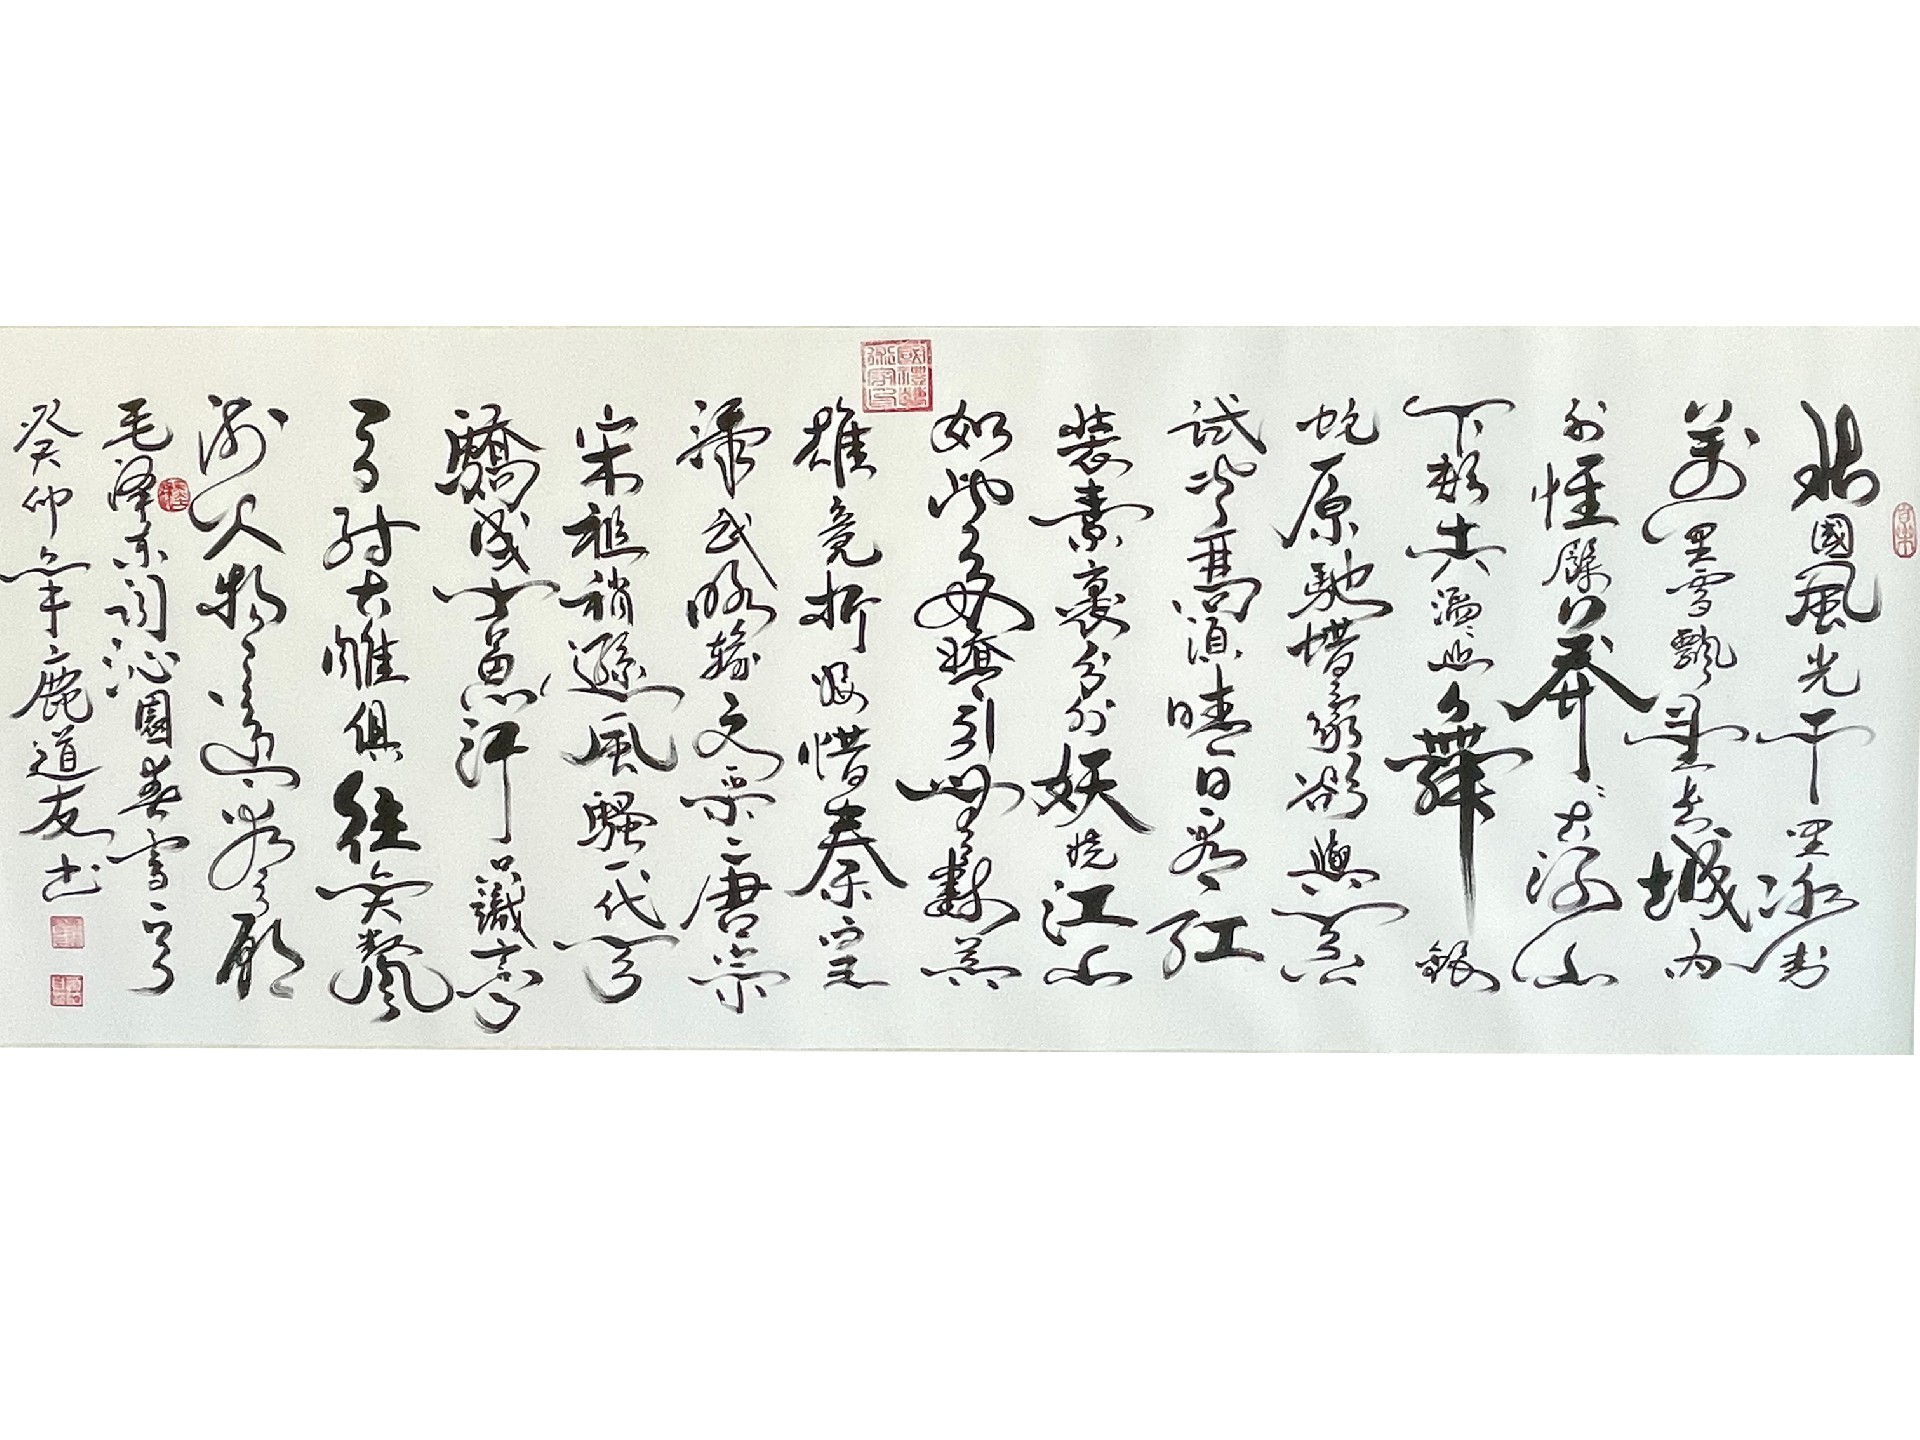 北國風光千里冰封
萬里雪飄望長城内
外惟餘莽莽大河上
下頓失滔滔山舞銀
蛇原馳蜡象欲與天
試比高須晴日看紅
裝素裹分外妖嬈江山
如此多嬌引無數英
雄競折腰惜秦皇
漢武略輸文采唐宗
宋祖稍遜風騷一代天
驕成吉思汗只識彎
弓射大雕俱往矣數風
流人物還看今朝
毛泽东词沁園春雪一首
癸卯年鹿道友书